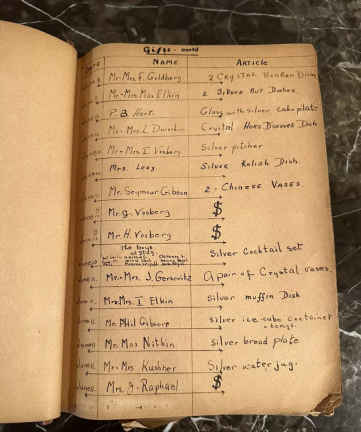 Gifts - cont'd
Name Article
Mr. Mrs F. Goldberg 2 Crystal Bonbon Dish
Mr. Mrs Max Elkin 2 Silver Nut Dishes
P.B. Hart. Glass with silver cake plate
Mr. Mrs. L Crystal Hors D'oeuvres Dish
Mr. Mrs. I. Vosberg Silver pitcher
Mrs. Lees Silver Relish Dish.
Mr. Seymour Gibson 2. Chinese Vases
Mr. G. Vosberg $
Mr. H. Vosberg $
The boys
at Silver Cocktail set
Mr. Mrs. J. Gersovitz A pair of Crystal vases.
Mr. Mrs. I Elkin Silver muffin Dish
Mr. Phil Gibson Silver ice cube container
+ tongs.
Mr. Mrs Nathin Silver bread plate
Mr. Mrs Kushner Silver water jug.
Mrs. G. Raphael $